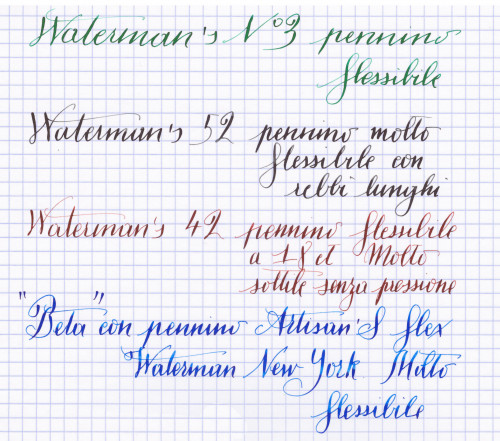 Waterman's N°3 pennino
flessibile
Waterman's 52 pennino molto
flessibile con
rebbi lunghi
Waterman's 42 pennino flessibile
a 18 ct Molto
sottile senza pressione
"Beta" con pennino Artisan'S flex
Waterman New York Molto
flessibile